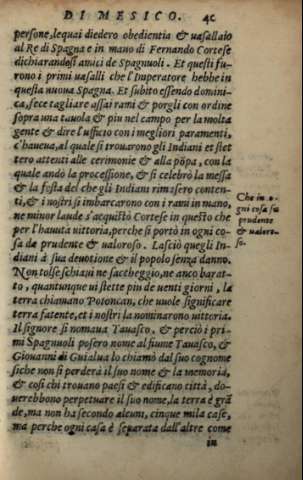 DI MESICO. 4c
persone, lequai diedero obedientia & uasallaio
al Re di Spagna e in mano di Fernando Cortese
dichiarandesi amici de Spagnuoli. Et questi fu-
rono i primi uasalli che l'Imperatore hebbe in
questa nuoua Spagna. Et subito essendo domini-
ca, fece tagliare assai rami & porgli con ordine
sopra una tauola & piu nel campo per la molta
gente & dire l'ufficio con i megliori paramenti,
c'haueua, al quale si trouarono gli Indiani et stet
tero attenti alle cerimonie & alla põpa, con la
quale andò la processione, & si celebrò la messa
& la festa del che gli Indiani rimasero conten-
ti, & i nostri si imbarcarono con i rami in mano,
ne minor laude s'acquistò Cortese in questo che
per l'hauuta uittoria, perche si portò in ogni co-
sa da prudente & ualoroso. Lasciò quegli In-
diani à sua deuotione & il popolo senza danno.
Non tolse schiaui ne saccheggio, ne anco barat-
to, quantunque ui stette piu de uenti giorni, la
terra chiamano Potoncan, che uuole significare
terra fatente, et i nostri la nominarono uittoria.
Il signore si nomaua Tauasco, & perciò i pri-
mi Spagnuoli posero nome al fiume Tauasco, &
Giouanni di Guialua lo chiamò dal suo cognome
siche non si perderà il suo nome & la memoria,
& cosi chi trouano paesi & edificano città, do-
uerebbono perpetuare il suo nome, la terra è grã
de, ma non ha secondo alcuni, cinque mila case,
ma perche ogni casa è separata dall'altre come
in
Che in o-
gni cosa fu
prudente
& ualoro-
so.